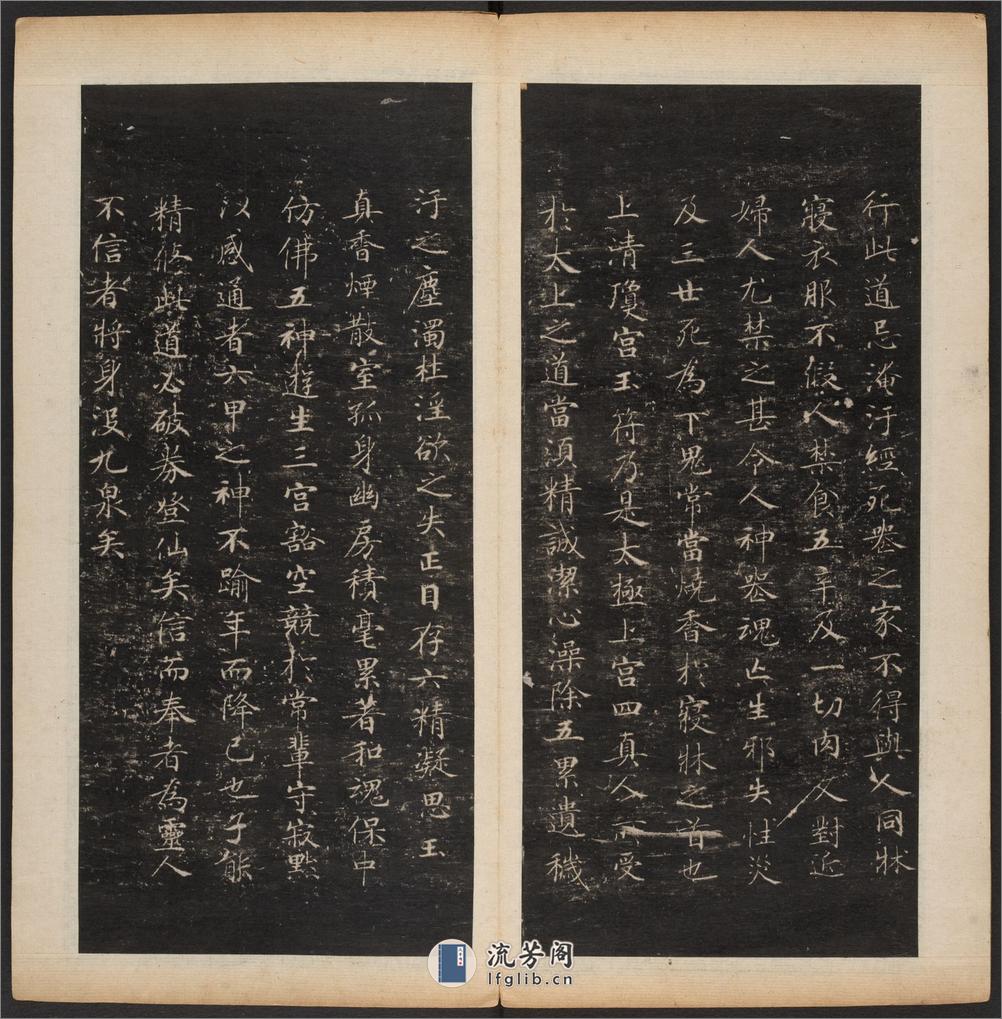 行此道忌淹汙經死喪之家不得與人同牀
寢衣服不假人禁食五辛及一切肉又對近
婦人尤禁之甚令人神喪魂亡生邪失性災
及三世死為下鬼常當燒香於寢牀之首也
上清瓊宮玉符乃是太極上宮四真人所受
於太上之道當須精誠潔心澡除五累遺穢
汙之塵濁杜淫欲之失正目存六精凝思玉
真香煙散室孤身幽房積毫累著和魂保中
仿佛五神遊生三宮豁空競於常輩守寂黙
以感通者六甲之神不踰年而降己也子能
精修此道必破券登仙矣信而奉者為靈人
不信者將身沒九泉矣
流芳阁
lfglib.cn